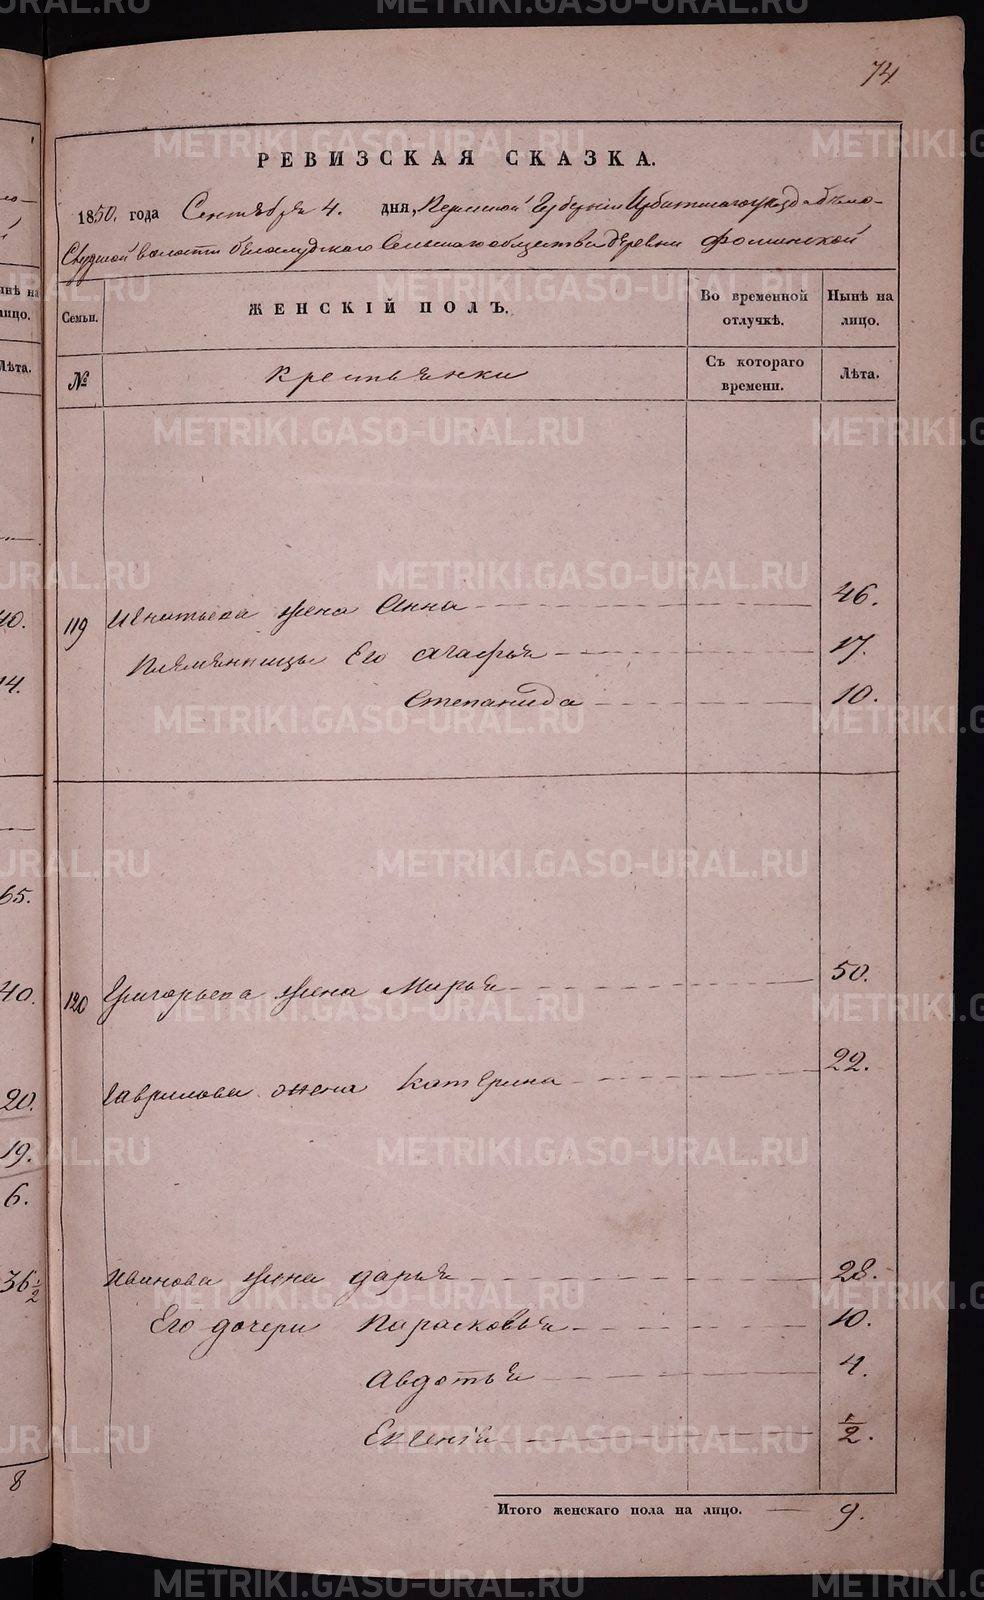 74
РЕВИЗСКАЯ СКАЗКА.
1850 года Сентября 4. дня, Пермской Губерніи Ирбитскаго уезда Бело-
Слудской волости Белослудскаго Сельскаго общества деревни Фоминской
Семьи.
ЖЕНСКІЙ ПОЛЪ.
Во временной отлучкѣ.
Нынѣ на лицо.
№
Крестьянки
Съ котораго времени.
Лѣта.
119 Игнатьева жена Анна 46.
Племянницы Его Агафья 17.
Степанида 10.
120 Григорьева жена Марья 50.
Гаврилова жена Катерина 22.
Иванова жена Дарья 28.
Его дочери Парасковья 10.
Авдотья 4.
Евгенія 1/2.
Итого женскаго пола на лицо. 9.
нѣ на
ицо.
Лѣта.
10.
14.
65.
40.
20.
19.
6.
36 1/2
8
METRIKI.GASO-URAL.RU